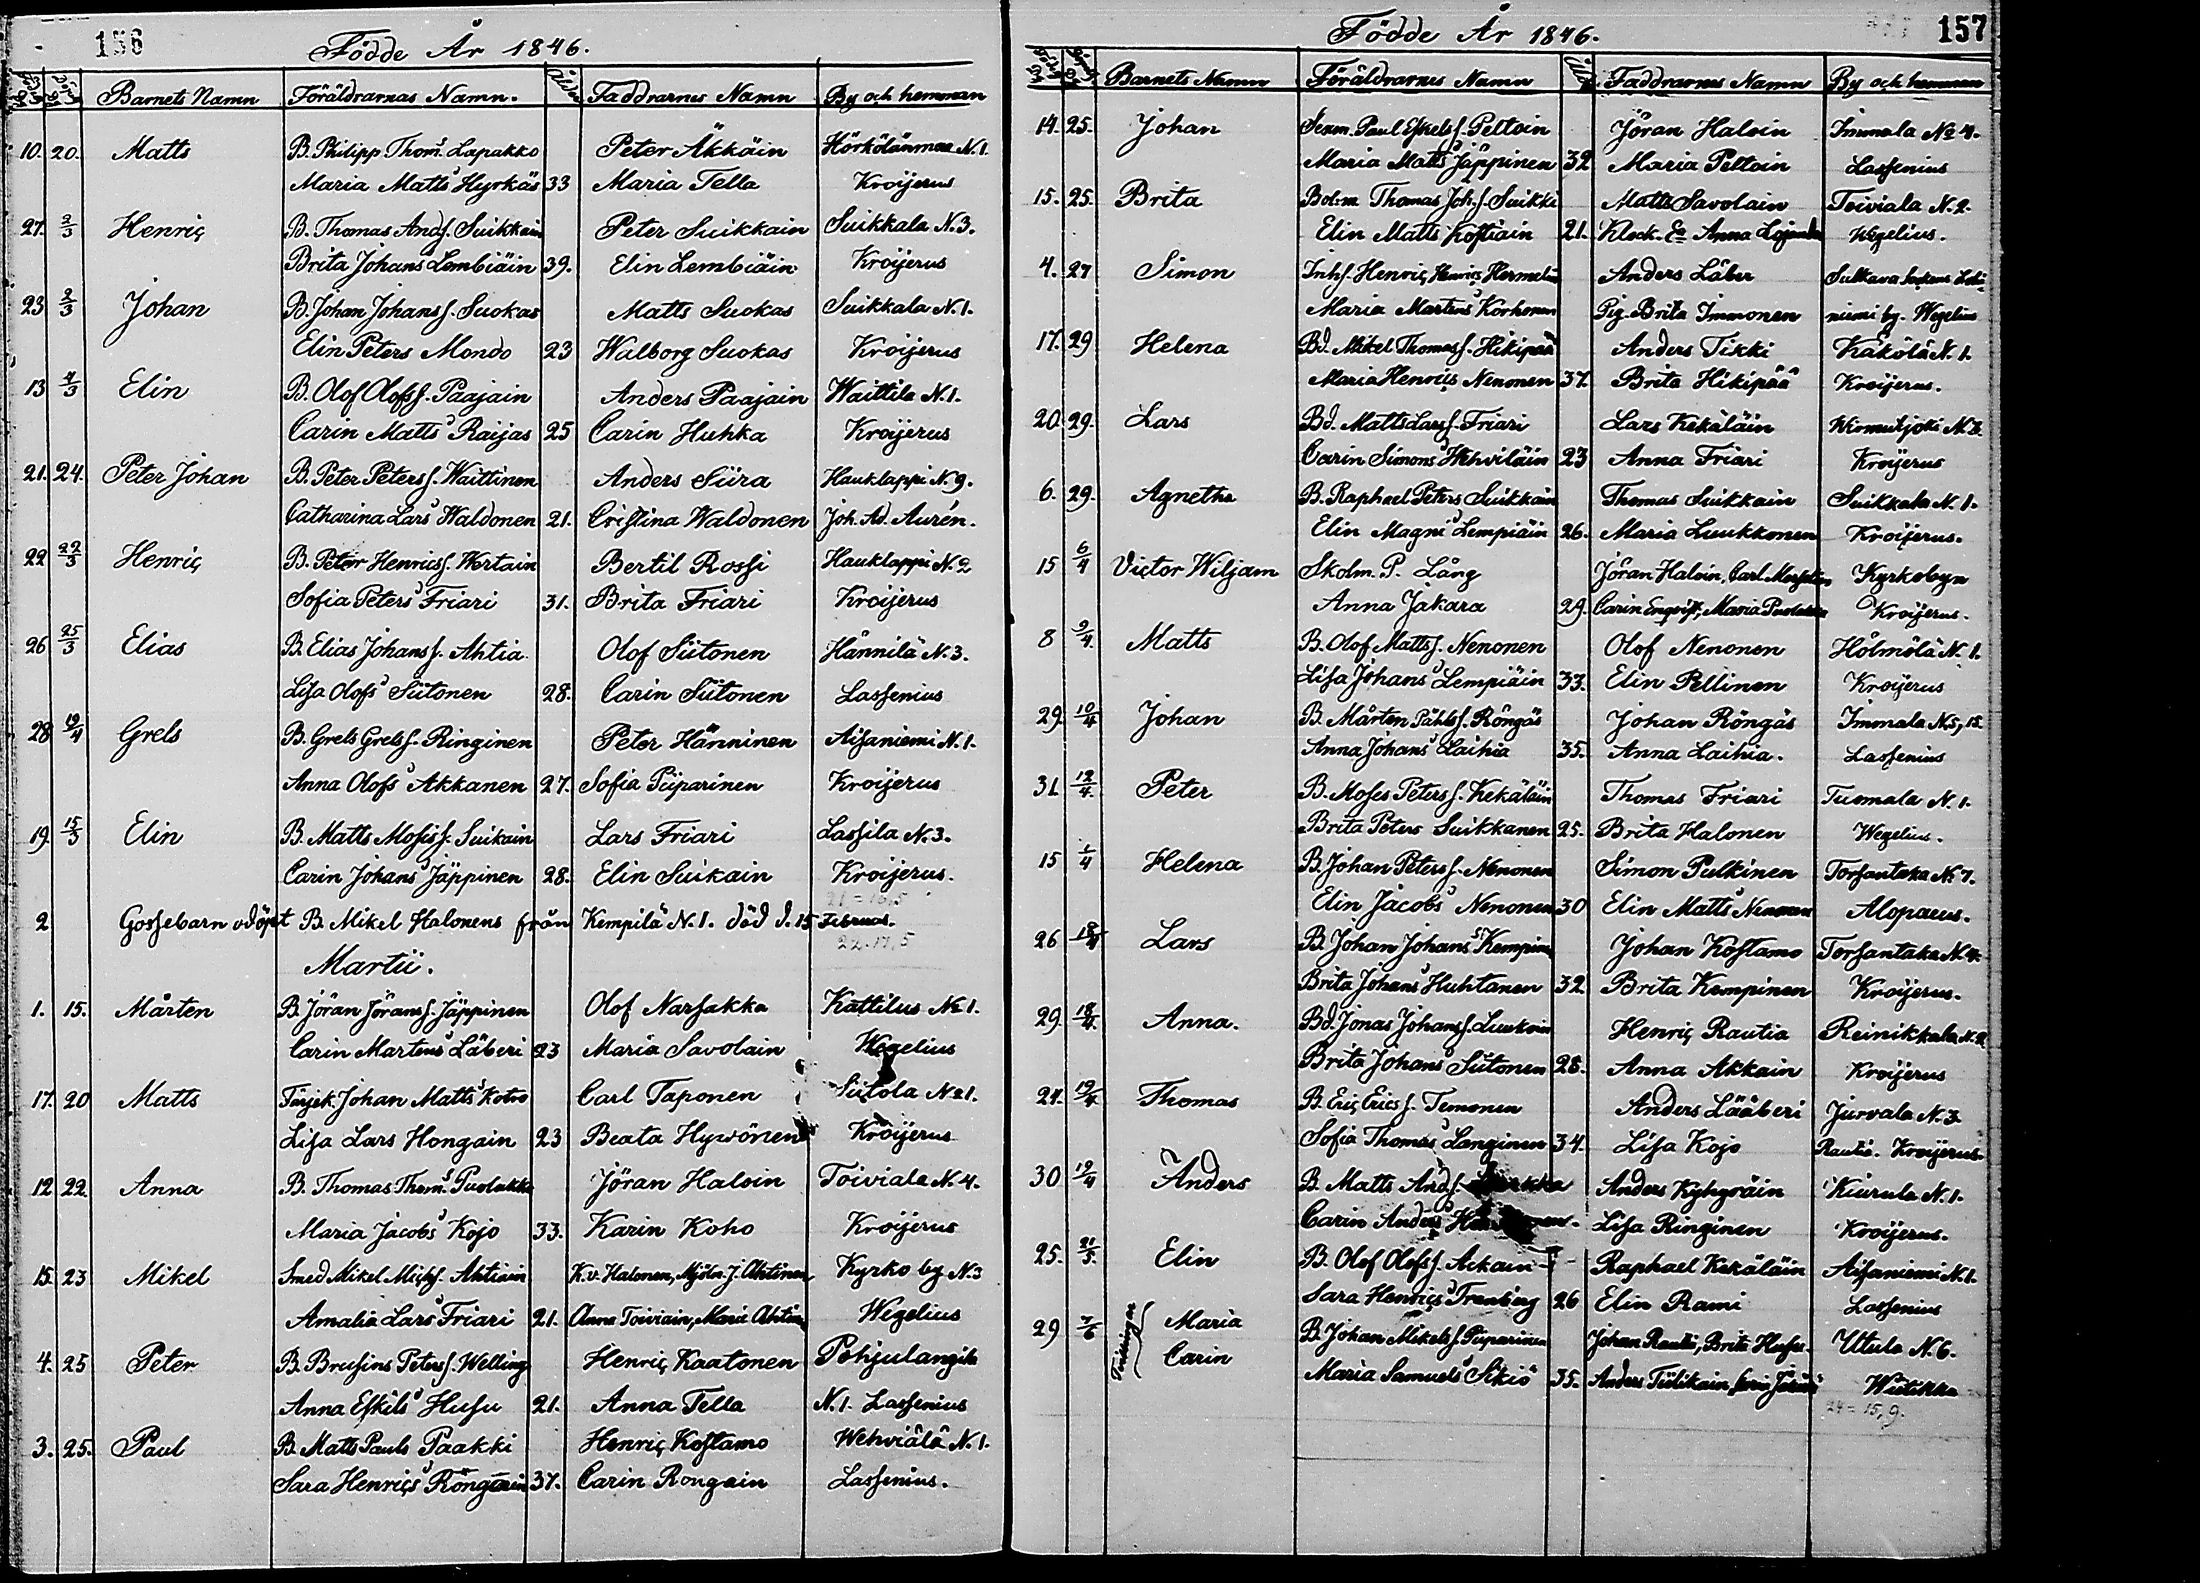 156
Födde År 1846.
Barnets Namn Föräldrarnas Namn. Ålder Faddrarnes Namn By och hemman
10. 20. Matts B. Philipp Thoms. Lapakko Peter Äkkäin Hörkölänmaa N. 1.
Maria Matts Hyrkäs 33 Maria Tella Kroijerus
27. 2/3 Henriç B. Thomas Ands. Suikkain Peter Suikkain Suikkala N. 3.
Brita Johans Lembiäin 39. Elin Lembiäin Kroijerus
23 2/3 Johan B. Johan Johanss. Suokas Matts Suokas Suikkala N. 1.
Elin Peters Mondo 23 Walborg Suokas Kroijerus
13 4/3 Elin B. Olof Olofss. Paajain Anders Paajain Waittila N. 1.
Carin Matts Raijas 25 Carin Huhka Kroijerus
21. 24. Peter Johan B. Peter Peterss. Waittinen Anders Siira Hauklappi N. 9.
Catharina Lars Waldonen 21. Cristina Waldonen Joh. Ad. Aurén.
22 22/3 Henriç B. Peter Henricss. Wertain Bertil Rossi Hauklappi N. 2
Sofia Peters Friari 31. Brita Friari Kroijerus
26 25/3 Elias B. Elias Johanss. Ahtia Olof Siitonen Hännilä N. 3.
Lisa Olofs Siitonen 28. Carin Siitonen Lassenius
28 19/4 Grels B. Grels Grelss. Ringinen Peter Hänninen Aisaniemi N. 1.
Anna Olofs Akkanen 27. Sofia Piiparinen Kroijerus
19. 15/3 Elin B. Matts Mosiss. Suikain Lars Friari Lassila N. 3.
Carin Johans Jäppinen 28. Elin Suikain Kroijerus.
21 = 16,5
2 Gossebarn odöpt B. Mikel Halonens från Kempilä N. 1. död d. 15 Februar.
22. 17,5
Martii.
1. 15. Mårten B. Jöran Jöranss. Jäppinen Olof Narsakka Kattilus No 1.
Carin Martens Läberi 23 Maria Savolain Wegelius
17. 20 Matts Johan Matts Kotro Carl Taponen Siitola No 1.
Lisa Lars Hongain 23 Beata Hywönen Kroijerus
12 22. Anna B. Thomas Thoms. Puolakka Jöran Haloin Toiviala N. 4.
Maria Jacobs Kojo 33. Karin Koho Kroijerus
15. 23 Mikel Smed Mikel Miçhs. Ahtiain K.v. Halonen, Mjöln. J. Ahtinen Kyrko by N. 3
Amalia Lars Friari 21. Anna Toiviain, Maria Ahtin Wegelius
4. 25 Peter B. Brusins Peterss. Welling Henriç Kaatonen Pohjulangila
Anna Eskils Husu 21. Anna Tella N. 1. Lassenius
3. 25. Paul B. Matts Pauls Paakki Henriç Kostamo Wehviälä N. 1.
Sara Henriçs Röngäin 37. Carin Rongain Lassenius.
157
Födde År 1846.
Barnets Namn Föräldrarnes Namn Ålder Faddrarnes Namn By och hemman
14. 25. Johan Sexm. Paul Eskelss. Peltoin Jöran Haloin Immala No 4.
Maria Matts Jäppinen 32 Maria Peltoin Lassenius
15. 25. Brita Bolm. Thomas Joh. s. Suikki Matts Savolain Toiviala N. 2.
Elin Matts Kostiain 21. Klock. Ea Anna Lojander Wegelius.
4. 27 Simon Inhs. Henriç Henrics Hermelin Anders Läber Sulkava Sockens
Maria Martens Korhonen Pig. Brita Immonen niemi by. Wegelius
17. 29 Helena Bd. Mikel Thomass. Hikipää Anders Tikki Käkölä N. 1.
Maria Henriçs Nenonen 37. Brita Hikipää Kroijerus.
20. 29. Lars Bd. Matts Larss. Friari Lars Kekäläin Wirmutjoki N. 3.
Carin Simons Wehviläin 23 Anna Friari Kroijerus
6. 29. Agnetha B. Raphael Peters Suikkain Thomas Suikkain Suikkala N. 1.
Elin Magni Lempiäin 26. Maria Luukkonen Kroijerus.
15 6/4 Victor Wiljam Skolm. P. Lång Jöran Haloin, Carl Kyrkobyn
Anna Jakara 29. Carin Enqvist, Maria Puolakka Kroijerus.
8 9/4. Matts B. Olof Mattss. Nenonen Olof Nenonen Hölmölä N. 1.
Lisa Johans Lempiäin 33. Elin Pellinen Kroijerus
29. 10/4 Johan B. Mårten Påhlss. Röngäs Johan Röngäs Immala N. 5, 15.
Anna Johans Laihia 35. Anna Laihia. Lassenius
31. 12/4. Peter B. Moses Peterss. Kekäläin Thomas Friari Tuomala N. 1.
Brita Peters Suikkanen 25. Brita Halonen Wegelius.
15 1/4 Helena B. Johan Peterss. Nenonen Simon Pulkinen Torsantaka N. 7.
Elin Jacobs Nenonen 30 Elin Matts Nenonen Alopaeus.
26 18/4 Lars B. Johan Johans Kempinen Johan Kostamo Torsantaka N. 4.
Brita Johans Huhtanen 32 Brita Kempinen Kroijerus.
29. 18/4. Anna. Bd. Jonas Johanss. Luukoin Henriç Rautia Reinikkala N. 2
Brita Johans Siitonen 28. Anna Akkain Kroijerus
24. 19/4. Thomas B. Eriç Ericss. Temonen Anders Lääberi Jurvala N. 3
Sofia Thomas Langinen 34. Lisa Kojo Rautis. Kroijerus.
30 19/4 Anders B. Matts Ands. Anders Kyhyräin Kiurula N. 1.
Carin Anders Lisa Ringinen Kroijerus.
25. 21/5. Elin B. Olof Olofss. Ackain Raphael Kekäläin Aisaniemi N. 1.
Sara Henrics Tranberg 26 Elin Rami Lassenius
29 7/6 Tvillingar Maria B. Johan Mikelss. Piiparinen Johan Rautio, Brita Husu. Utula N. 6.
Carin Maria Samuels Sikiö 35. Anders Tiilikain, Wiitikka
24 = 15,9.